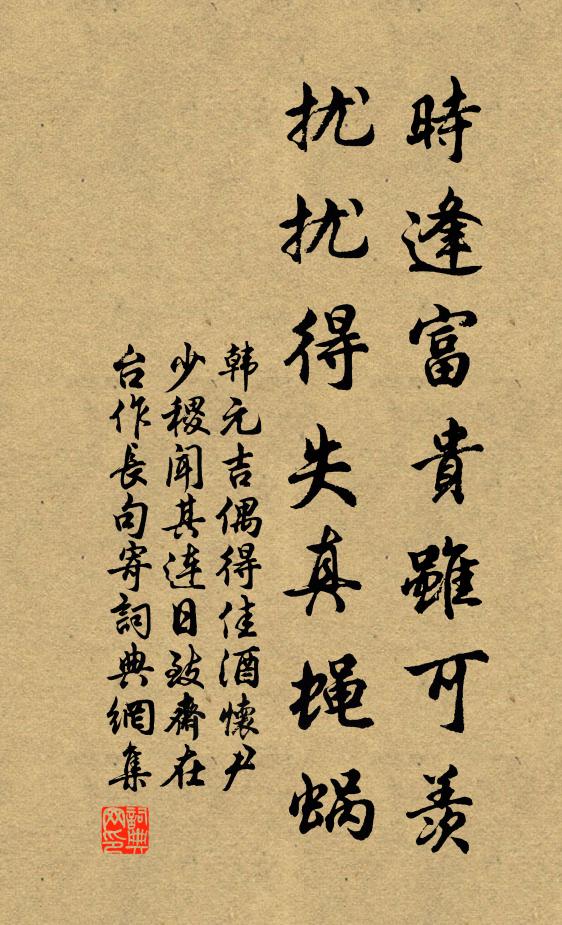 時逢富貴雖可羨
扰扰得失真蝇蜗
韩元吉偶得佳酒懷尹
少稷闻其连日致齋在
台作長句寄詞典網集
詞典
网印